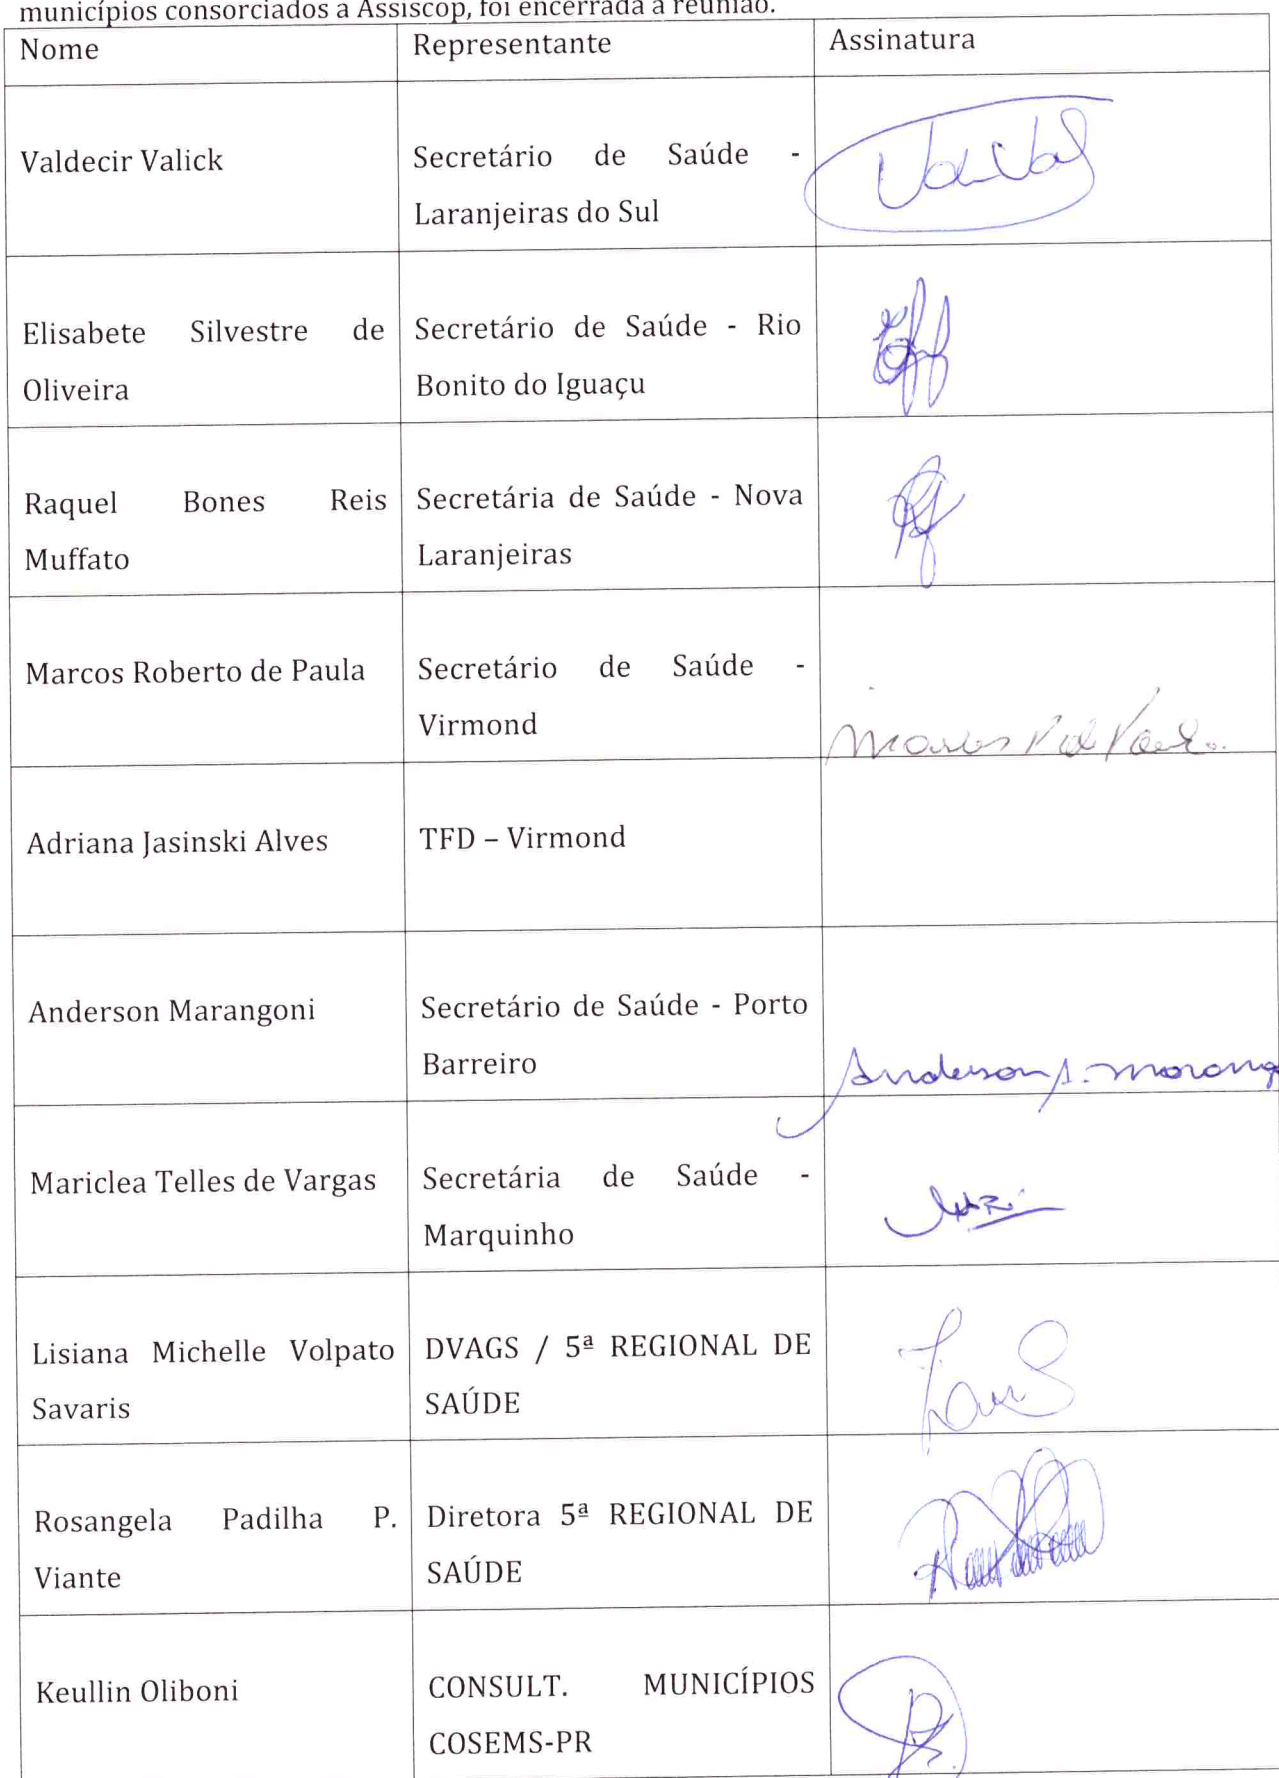 municípios consorciados a Assiscop, foi encerrada a reunião.
Nome Representante Assinatura
Valdecir Valick
Secretário de Saúde -
Laranjeiras do Sul
Elisabete Silvestre de
Oliveira
Secretário de Saúde - Rio
Bonito do Iguaçu
Raquel Bones Reis
Muffato
Secretária de Saúde - Nova
Laranjeiras
Marcos Roberto de Paula
Secretário de Saúde -
Virmond
Adriana Jasinski Alves
TFD – Virmond
Anderson Marangoni
Secretário de Saúde - Porto
Barreiro
Anderson A. Marang
Mariclea Telles de Vargas
Secretária de Saúde -
Marquinho
Lisiana Michelle Volpato
Savaris
DVAGS / 5ª REGIONAL DE
SAÚDE
Rosangela Padilha P.
Viante
Diretora 5ª REGIONAL DE
SAÚDE
Keullin Oliboni
CONSULT. MUNICÍPIOS
COSEMS-PR